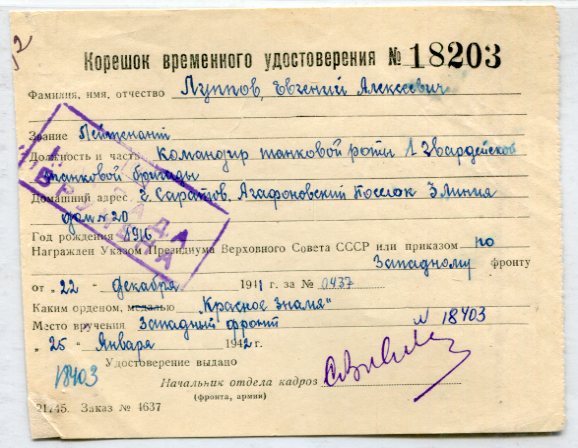 12
Корешок временного удостоверения № 18203
Фамилия, имя, отчество Луппов, Евгений Алексеевич
Звание Лейтенант
Должность и часть Командир танковой роты 1 Гвардейской
танковой бригады
Домашний адрес г. Саратов. Агафоновский Поселок 3 Линия
дом № 20
Год рождения 1916
Награжден Указом Президиума Верховного Совета СССР или приказом по
Западному фронту
от „22„ декабря 1941 г. за № 0437
Каким орденом, медалью „Красное Знамя"
Место вручения Западный фронт № 18403
„25„ Января 1942 г.
Удостоверение выдано
18403
Начальник отдела кадров
(фронта, армии)
21745. Заказ № 4637
НАГРАДА
ВРУЧЕНА